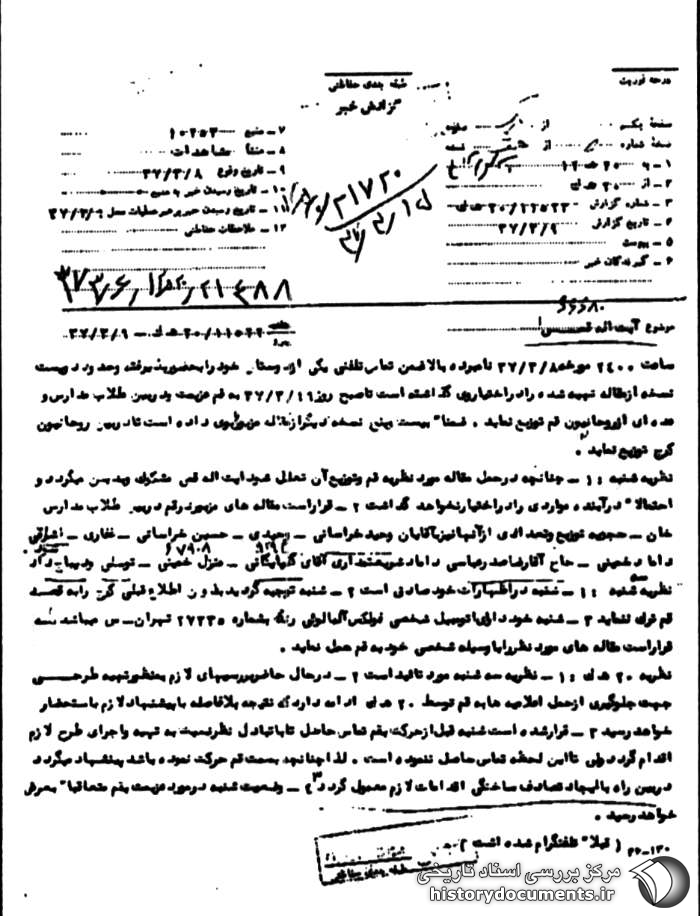 درجه فوریت
طبقه بندی حفاظتی
گزارش خبر
صفحه یکم از یک صفحه
نسخه شماره از نسخه
۱ - به
۲ - از ۲۰ هـ ل
۳ - شماره گزارش ۲۰/۲۲۵۲۳ هـ ل
۴ - تاریخ گزارش ۳۷/۳/۹
۵ - پیوست
۶ - گیرندگان خبر
۷ - منبع ۱۰۲۵۳
۸ - منشأ مشاهدات
۹ - تاریخ وقوع ۳۷/۳/۸
۱۰ - تاریخ رسیدن خبر به منبع
۱۱ - تاریخ رسیدن خبر به رهبر عملیات محل ۳۷/۳/۹
۱۲ - ملاحظات حفاظتی
۲۱۷۲۰
۲۱۴۸۸
۶۶۶۸۰
موضوع آیت اله قمی
ساعت ۲۴۰۰ مورخه ۳۷/۳/۸ نامبرده بالا ضمن تماس تلفنی یکی از دوستان خود را بحضور پذیرفته و حدود دویست
نسخه از مقاله تهیه شده را در اختیار وی گذاشته است تا صبح روز ۳۷/۳/۱۹ به قم عزیمت و در بین طلاب مدارس و
عده ای از روحانیون قم توزیع نماید . ضمنا" بیست و پنج نسخه دیگر از مقاله مزبور بوی داده است تا در بین روحانیون
کرج توزیع نماید .
نظریه شنبه : ۱ - چنانچه در حمل مقاله مورد نظر به قم و توزیع آن تعلل شود آیت اله قمی مشکوک و بدبین میگردد و
احتمالا" در آینده مواردی را در اختیار نخواهد گذاشت ۲ - قرار است مقاله های مزبور در قم در بین طلاب مدارس
خان - حجتیه توزیع و تعدادی از آنها نیز به آقایان وحید خراسانی - وحیدی - حسین خراسانی - غفاری - اشراقی
داماد خمینی - حاج آقا رضا صدر عباسی داماد شریعتمداری آقای گلپایگانی - منزل خمینی - توسلی و دیباج داده شود
۶۷۹۰۸
نظریه شنبه : ۱ - شنبه در اظهارات خود صادق است ۲ - شنبه توجیه گردید بدون اطلاع قبلی کرج را به قصد
قم ترک ننماید ۳ - شنبه خود دارای اتومبیل شخصی فولکس آلبالوئی رنگ بشماره ۲۷۲۳۵ تهران - س میباشد که
قرار است مقاله های مورد نظر را با وسیله شخصی خود به قم حمل نماید .
نظریه ۲۰ هـ ل : ۱ - نظریه سه شنبه مورد تائید است ۲ - در حال حاضر بررسیهای لازم بمنظور تهیه طرحی
جهت جلوگیری از حمل اعلامیه ها به قم توسط ۲۰ هـ ل ادامه دارد که نتیجه بلافاصله با پیشنهاد لازم باستحضار
خواهد رسید ۳ - قرار شده است شنبه قبل از حرکت بقم تماس حاصل تا با تبادل نظر نسبت به تهیه و اجرای طرح لازم
اقدام گردد ولی تا این لحظه تماس حاصل ننموده است . لذا چنانچه بسمت قم حرکت نموده باشد پیشنهاد میگردد
در بین راه با ایجاد تصادف ساختگی اقدامات لازم معمول گردد ۴ - وضعیت شنبه در مورد عزیمت بقم متعاقبا" بعرض
خواهد رسید .
( قبلا" تلفنگرام شده است )
مرکز بررسی اسناد تاریخی
historydocuments.ir